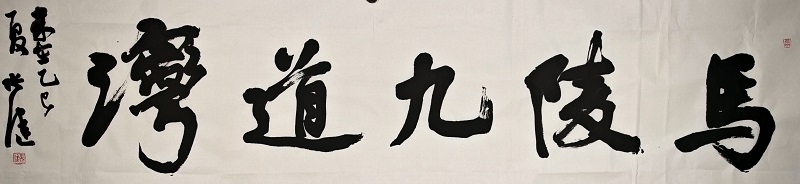 馬陵九道灣
乙巳夏